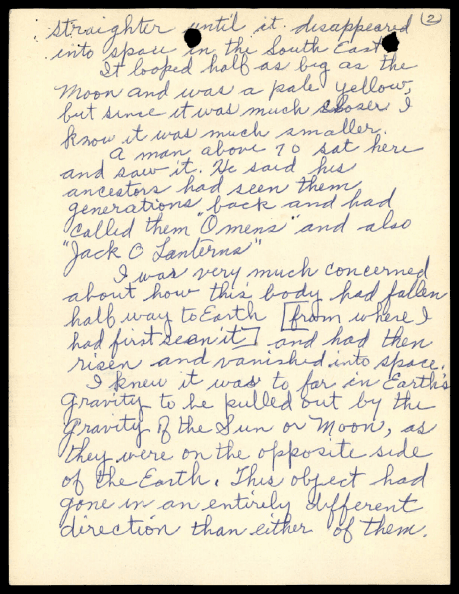 (2)
straighter until it disappeared
into space in the South East.
It looped half as big as the
Moon and was a pale yellow,
but since it was much closer I
know it was much smaller.
A man above 70 sat here
and saw it. He said his
ancestors had seen them
generations back and had
called them "Omens" and also
"Jack O Lanterns"
I was very much concerned
about how this body had fallen
half way to Earth [from where I
had first seen it] and had then
risen and vanished into space.
I knew it was to far in Earth's
gravity to be pulled out by the
Gravity of the Sun or Moon, as
they were on the opposite side
of the Earth. This object had
gone in an entirely different
direction than either of them.